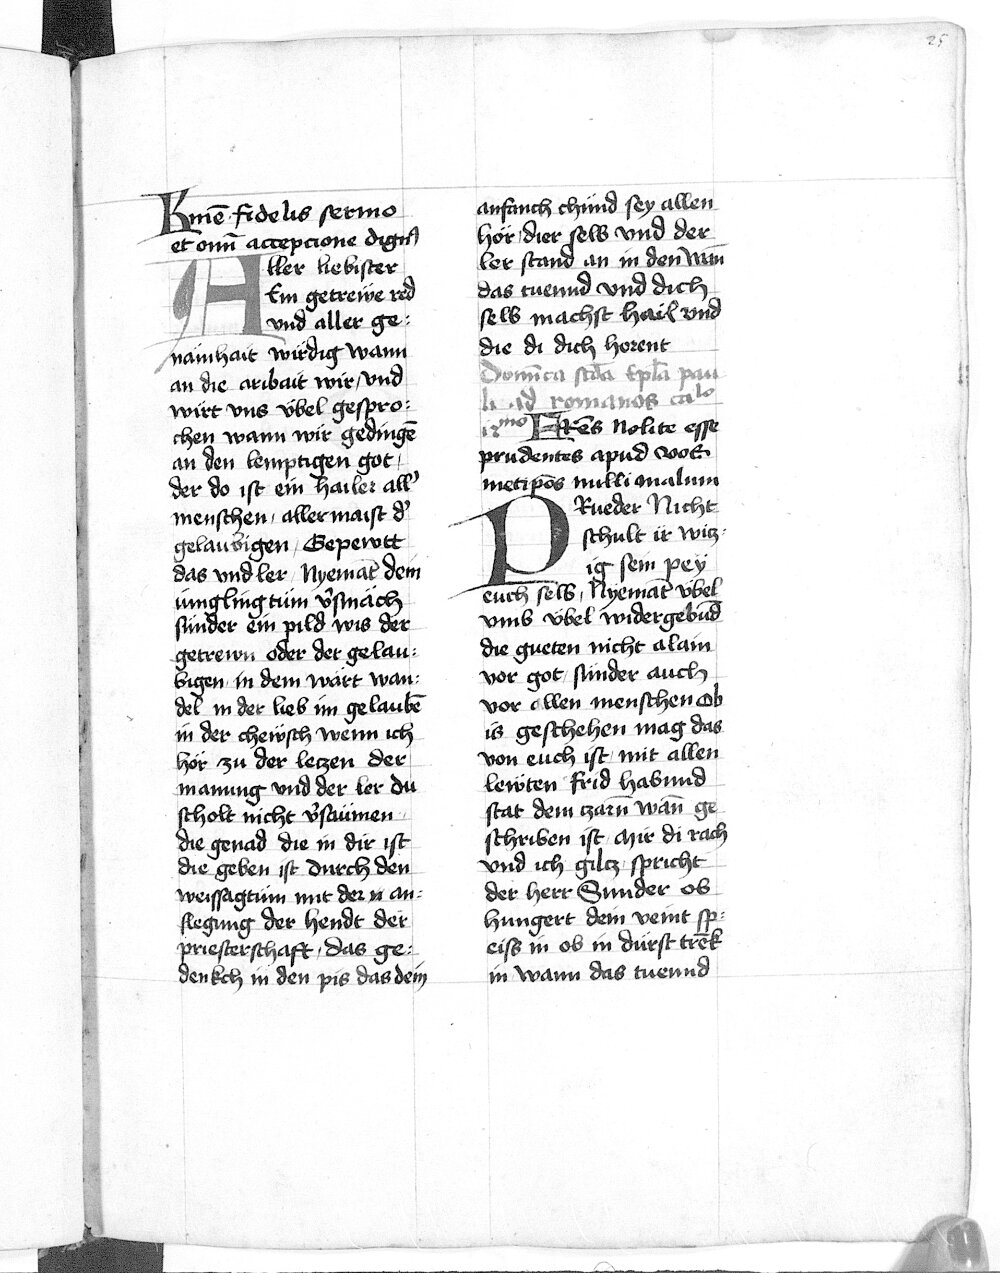 25
Kme͞ Fidelis sermo
et om̄i accepcione dign᷒
Aller liebister
Ein getrewe red
vnd aller ge:
nämhait wirdig wann
an die aribait wir / vnd
wirt vns übel gespro:
chen wann wir gedinge͞
an den lemptigen got /
der do ist ein hailer all᷑
menschen / aller maist d᷑
gelaubigen / Gepewtt
das vnd ler / Nyema͞t dem
iungling tum v᷑smäch
sünder ein pild wis der
getrewn oder der gelau:
bigen / in dem wärt wan:
del in der lieb im gelaube͞
in der chewsch wenn ich
hör zu der leczen der
manung vnd der ler Du
scholt nicht v᷑saümen
die genad die in dir ist
die geben ist durch den
weissagtum mit der n an:
slegung der hendt der
priesterschaft / das ge:
denkch in den pis das dein
anfanch chünd sey allen
hör / dier selb vnd der
ler stand an in den wan̄
das tuennd vnd dich
selb machst hail vnd
die di dich horent
Dom̄ica scd̄a Epl̄a pau
li ad romanos ca lo
12mo Fr̄es Nolite esse
prudentes apud vos
metip̄os nulli malum
PRueder Nicht
schult ir wicz:
ig sein pey
euch selb / Nyema͞t vbel
vmb vbel widergebūd
die gueten nicht alain
vor got / sünder auch
vor allen menschen Ob
is geschehen mag das
von euch ist / mit allen
lewten frid habund
stat dem czarn̄ wan̄ ge
schriben ist Mir di rach
vnd ich gilcz / spricht
der herr Sunder ob
hungert dein veint sp:
eiss in ob in dürst tre͞k
in wann das tuennd